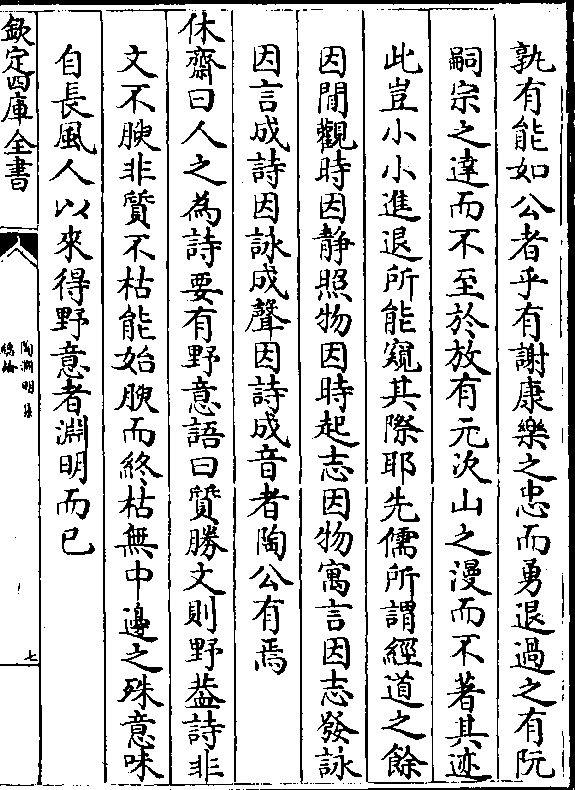 孰有能如公者乎有謝康樂之忠而勇退過之有阮
嗣宗之達而不至於放有元次山之漫而不著其迹
此豈小小進退所能窺其際耶先儒所謂經道之餘
因閒觀時因静照物因時起志因物寓言因志發詠
因言成詩因詠成聲因詩成音者陶公有焉
休齋曰人之為詩要有野意語曰質勝文則野葢詩非
文不腴非質不枯能始腴而終枯無中邊之殊意味
自長風人以來得野意者淵明而已
欽定四庫全書
陶淵明集
總論
七